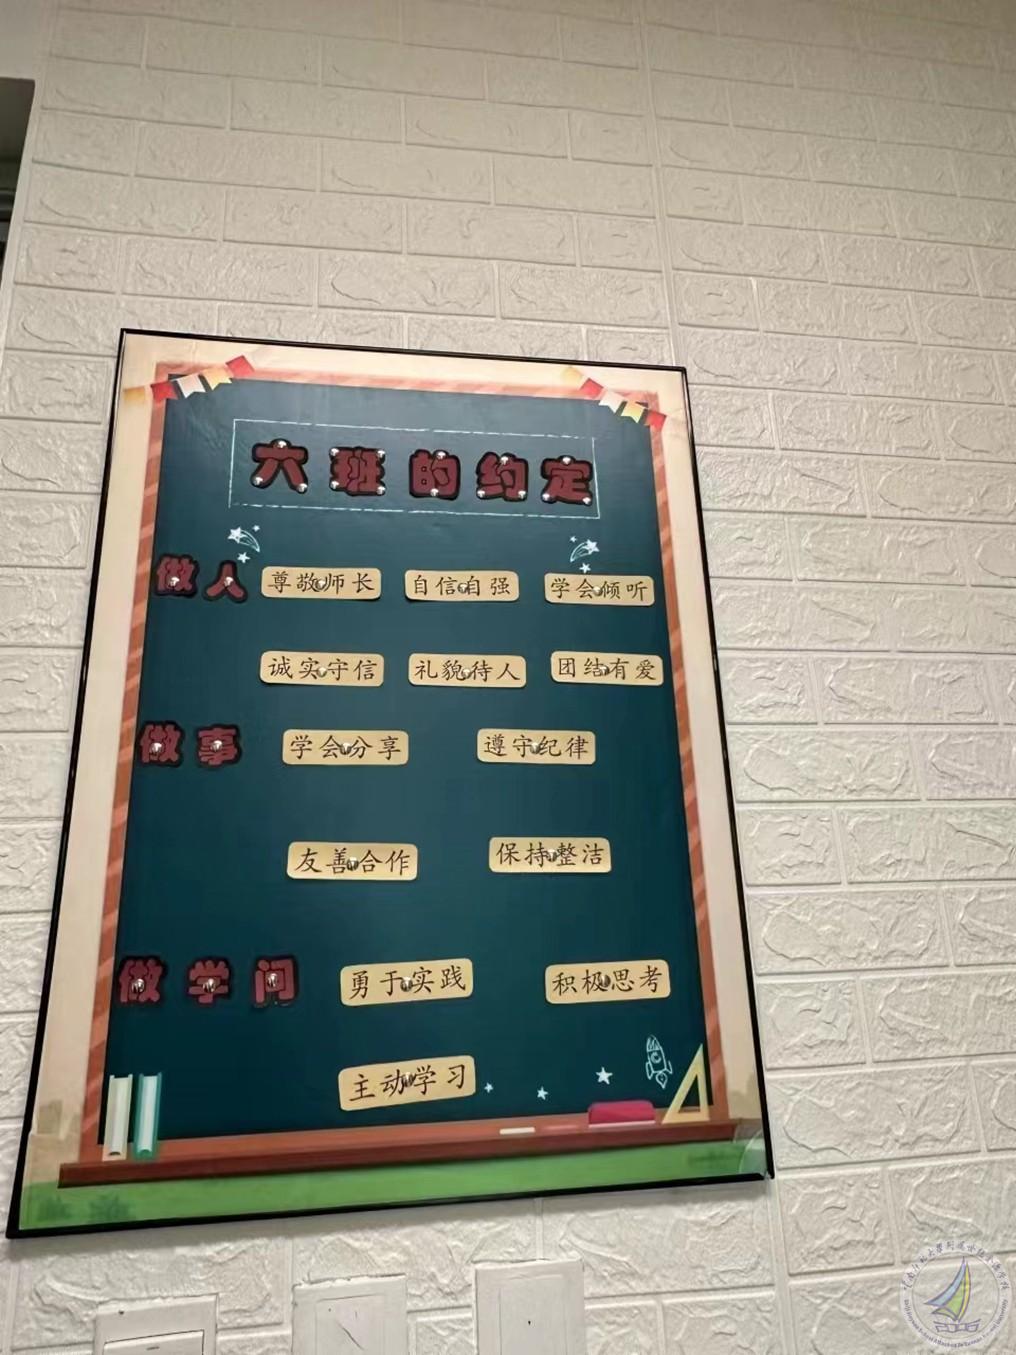 六班的约定
做人 尊敬师长 自信自强 学会倾听
诚实守信 礼貌待人 团结有爱
做事 学会分享 遵守纪律
友善合作 保持整洁
做学问 勇于实践 积极思考
主动学习